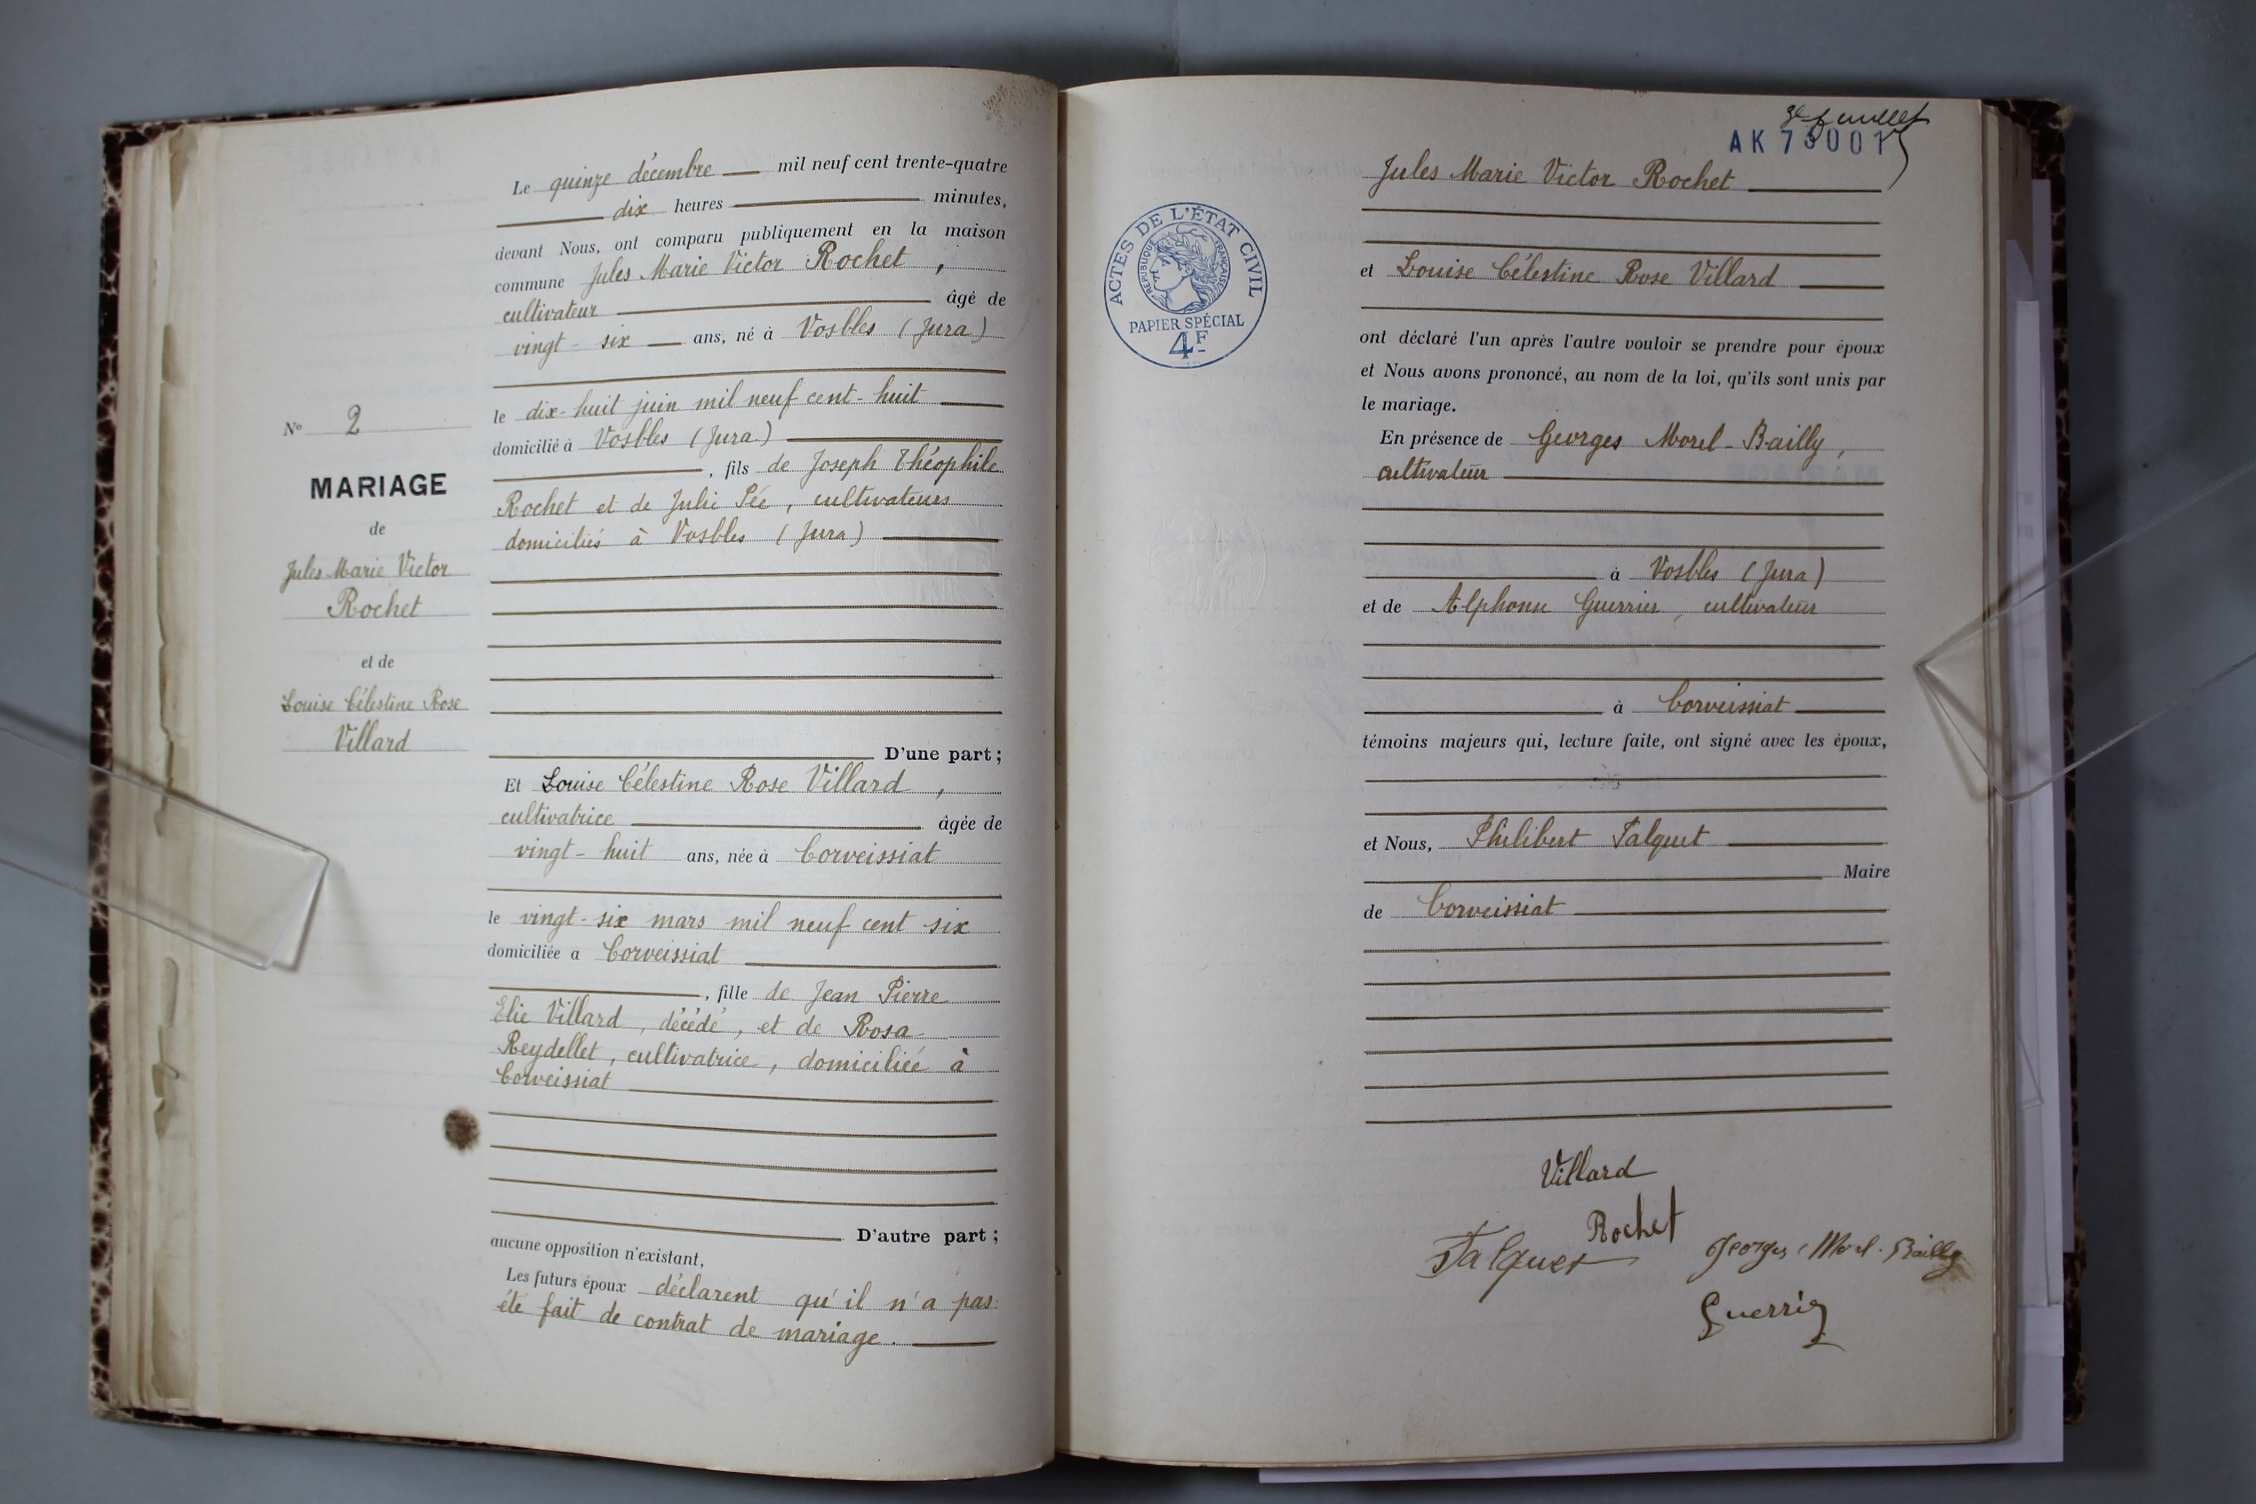 Le quinze décembre mil neuf cent trente-quatre
dix heures minutes,
devant Nous, ont comparu publiquement en la maison
commune Jules Marie Victor Rochet,
cultivateur âgé de
vingt-six ans, né à Vosbles (Jura)
le dix-huit juin mil neuf cent-huit
domicilié à Vosbles (Jura)
, fils de Joseph Théophile
Rochet et de Julie Pée, cultivateurs
domiciliés à Vosbles (Jura)
D'une part ;
Et Louise Célestine Rose Villard,
cultivatrice âgée de
vingt-huit ans, née à Corveissiat
le vingt-six mars mil neuf cent six
domiciliée a Corveissiat
, fille de Jean Pierre
Elie Villard, décédé, et de Rosa
Reydellet, cultivatrice, domiciliée à
Corveissiat
D'autre part ;
aucune opposition n'existant,
Les futurs époux déclarent qu'il n'a pas
été fait de contrat de mariage.
No 2
MARIAGE
de
Jules Marie Victor
Rochet
et de
Louise Célestine Rose
Villard
3e feuillet
AK 73001
Jules Marie Victor Rochet
et Louise Célestine Rose Villard
ont déclaré l'un après l'autre vouloir se prendre pour époux
et Nous avons prononcé, au nom de la loi, qu'ils sont unis par
le mariage.
En présence de Georges Morel-Bailly,
cultivateur
à Vosbles (Jura)
et de Alphonse Guerrier, cultivateur
à Corveissiat
témoins majeurs qui, lecture faite, ont signé avec les époux,
et Nous, Philibert Falquet
Maire
de Corveissiat
Villard
Rochet
Falquet
Georges Morel-Bailly
Guerrier
ACTES DE L'ÉTAT CIVIL
RÉPUBLIQUE FRANÇAISE
PAPIER SPÉCIAL
4F